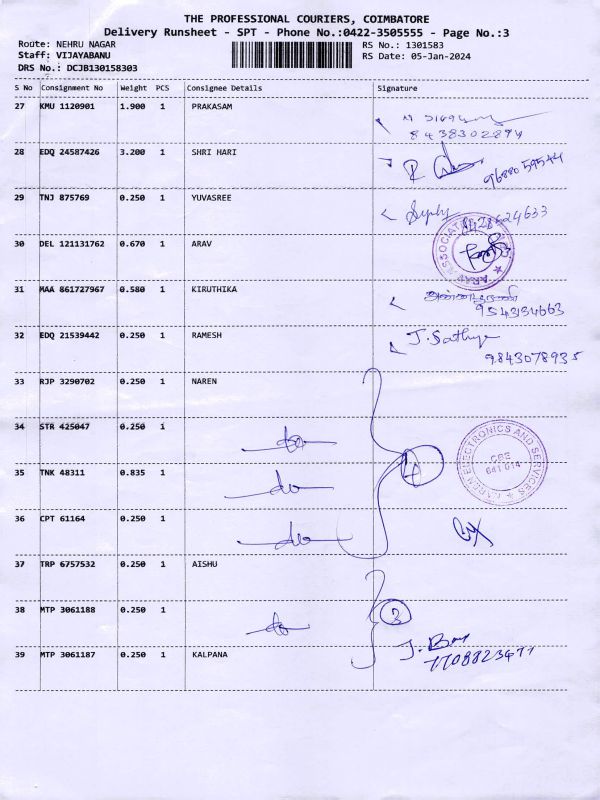 THE PROFESSIONAL COURIERS, COIMBATORE
Delivery Runsheet - SPT - Phone No.:0422-3505555 - Page No.:3
Route: NEHRU NAGAR
Staff: VIJAYABANU
DRS No.: DCJB130158303
RS No.: 1301583
RS Date: 05-Jan-2024
S No Consignment No Weight PCS Consignee Details Signature
27 KMU 1120901 1.900 1 PRAKASAM
8438302894
28 EDQ 24587426 3.200 1 SHRI HARI
9688059544
29 TNJ 875769 0.250 1 YUVASREE
30 DEL 121131762 0.670 1 ARAV
31 MAA 861727967 0.580 1 KIRUTHIKA
32 EDQ 21539442 0.250 1 RAMESH
J. Sathya
9843078935
33 RJP 3290702 0.250 1 NAREN
34 STR 425047 0.250 1 do
35 TNK 48311 0.835 1 do
4
NAREN ELECTRONICS AND SERVICES
CBE
641 014
36 CPT 61164 0.250 1 do
37 TRP 6757532 0.250 1 AISHU
38 MTP 3061188 0.250 1 do
3
39 MTP 3061187 0.250 1 KALPANA
7708823477